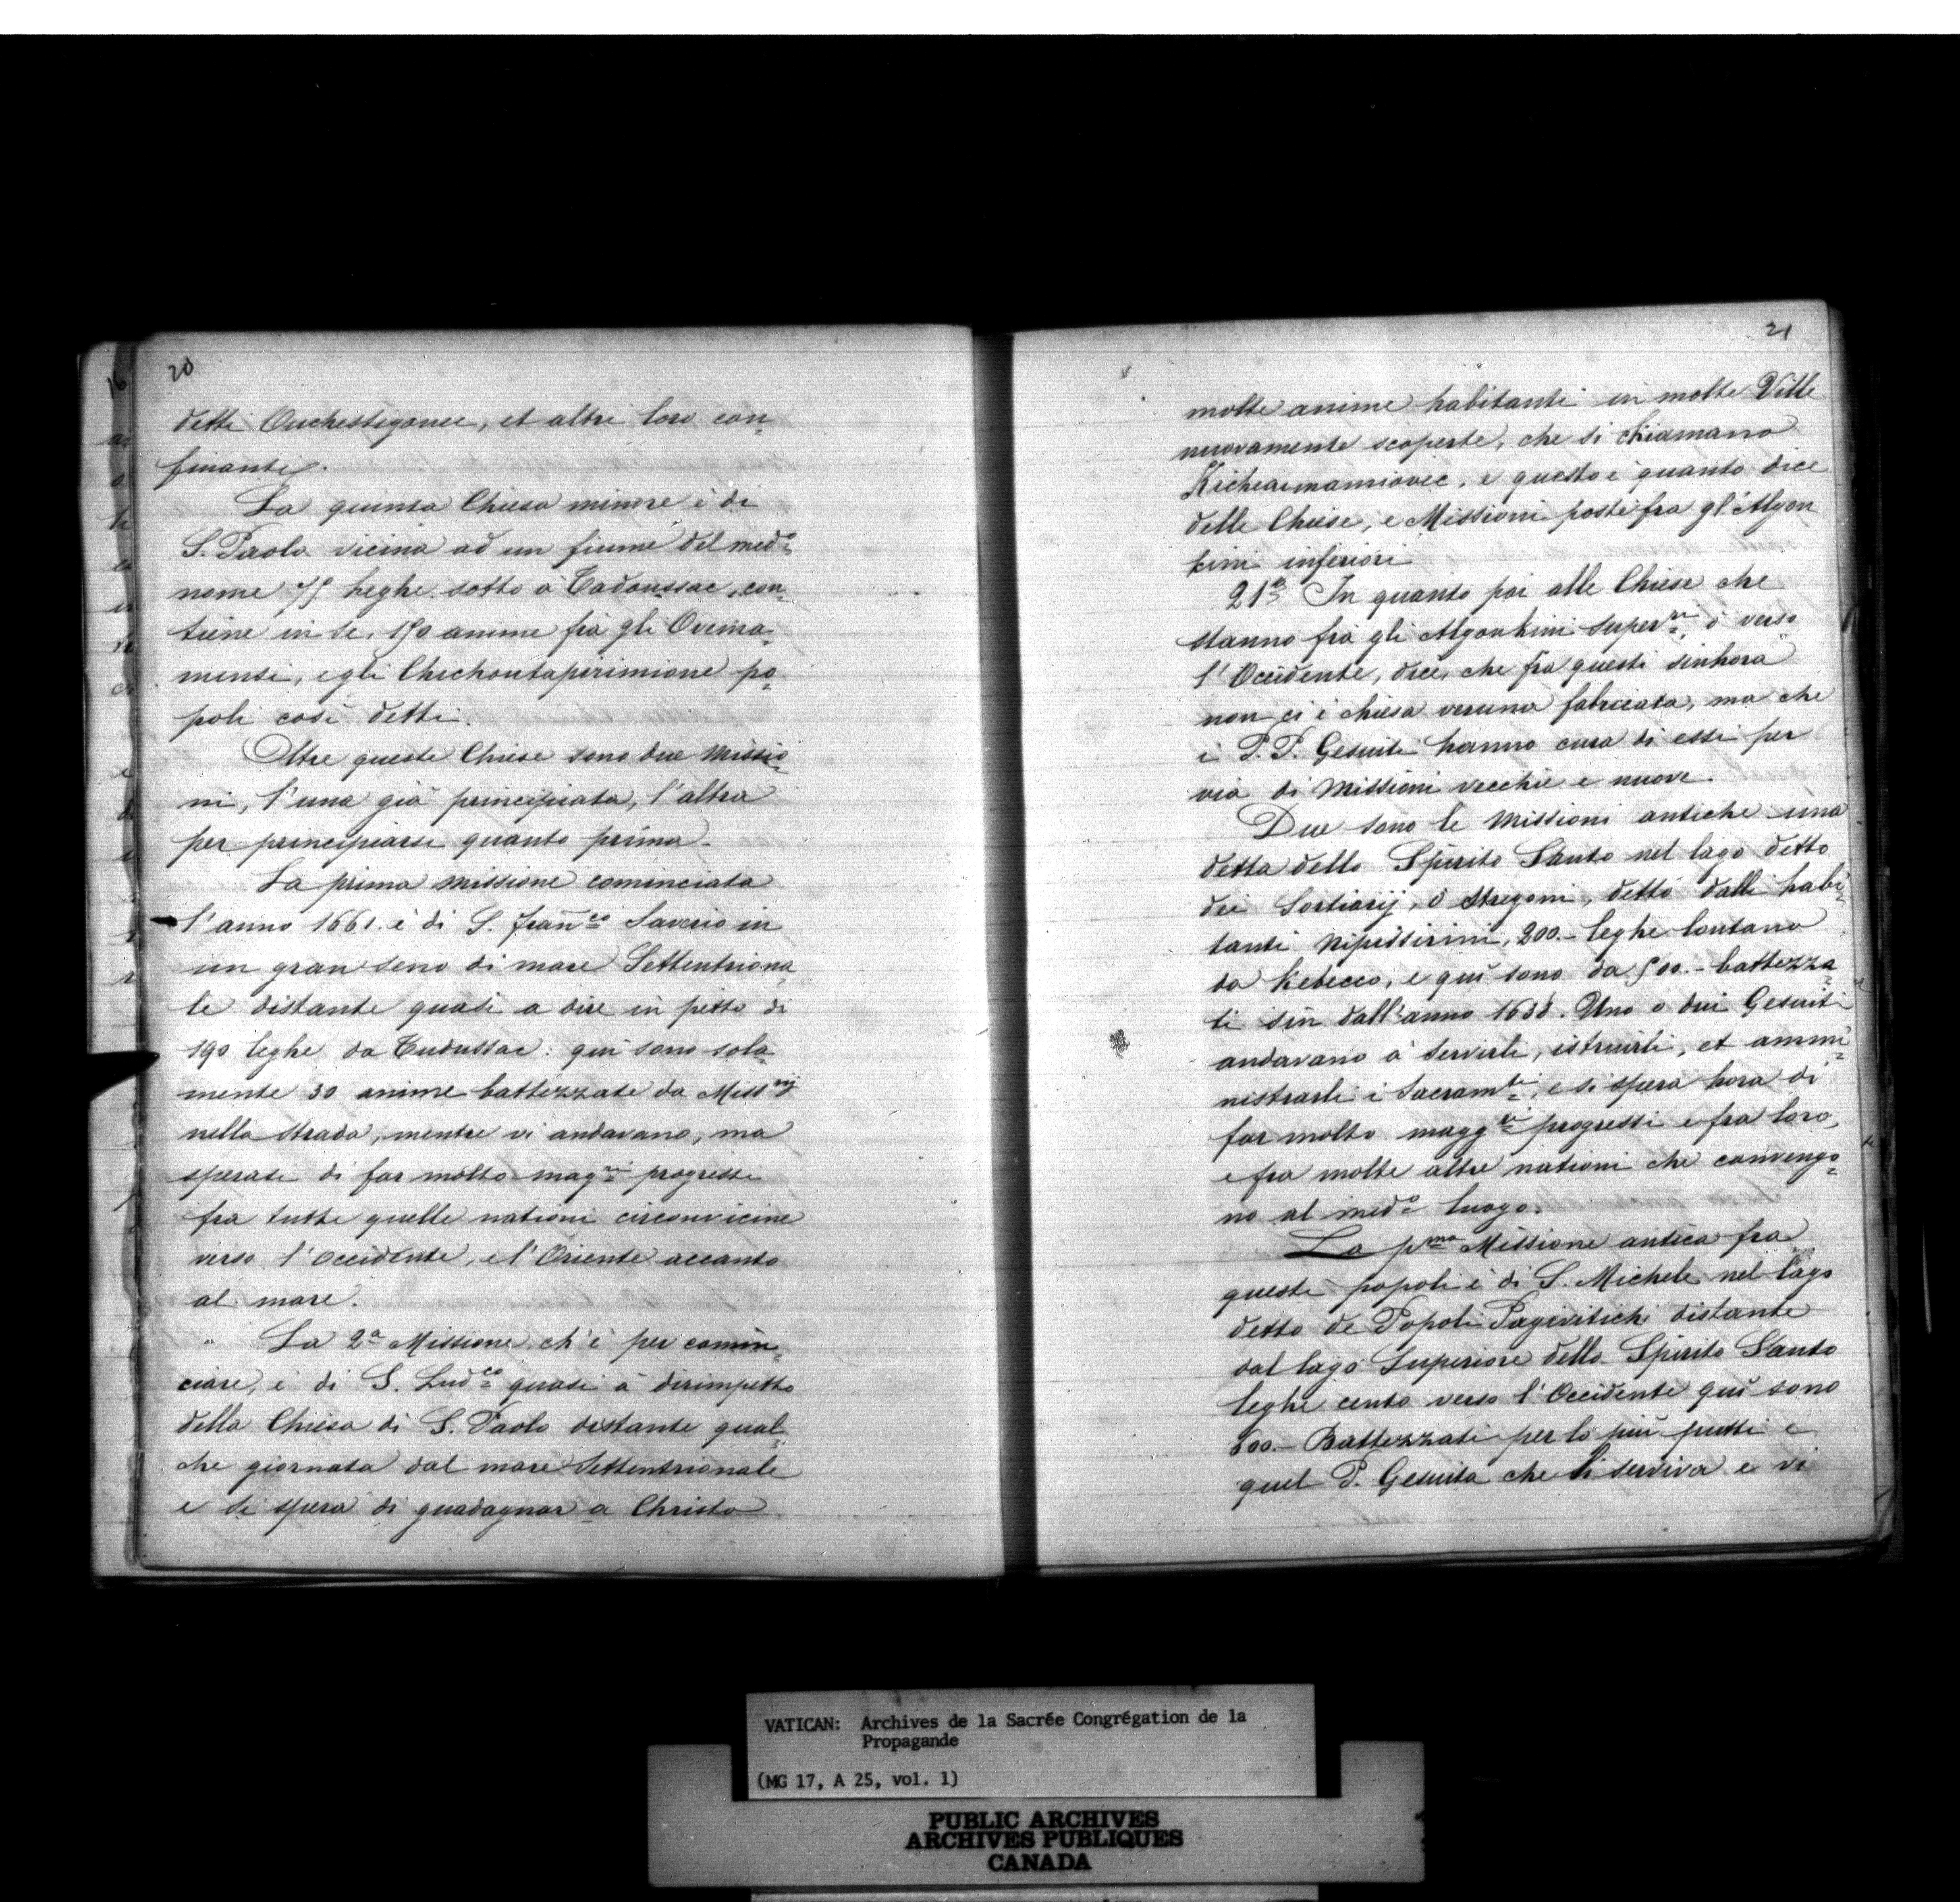 20
detti Ouchestegonee, et altri loro con=
finanti.
La quinta Chiesa minore è di
S. Paolo vicina ad un fiume del med.º
nome 75 leghe sotto à Tadoussac, con=
tiene in se, 150 anime frà gli Ovema=
mensi, e gli Chichoutapirimione po=
poli così detti.
Oltre queste Chiese sono due Missio=
ni, l'una già principiata, l'altra
per principiarsi quanto prima.
La prima missione cominciata
l'anno 1661. è di S. Fran.co Saverio in
un gran seno di mare Settentriona=
le distante quasi a dire in petto di
190 leghe da Tudussac: qui sono sola=
mente 30 anime battezzate da Miss.rij
nella strada, mentre vi andavano, ma
sperasi di far molto mag.ri progressi
fra tutte quelle nationi circonvicine
verso l'Occidente, e l'Oriente accanto
al mare.
La 2a Missione ch'è per comin=
ciare, è di S. Lud.co quasi à dirimpetto
della Chiesa di S. Paolo distante qual=
che giornata dal mare Settentrionale
e si spera di guadagnar a Christo
21
molte anime habitanti in molte Ville
nuovamente scoperte, che si chiamano
e questo è quanto dice
delle Chiese, e Missioni poste fra gl'Algon
kini inferiori
21º In quanto poi alle Chiese che
stanno frà gli Algonkini super.ri, ò verso
l'Occidente, dice, che fra questi sinhora
non ci è chiesa veruna fabricata, ma che
i P.P. Gesuiti hanno cura di essi per
via di Missioni vecchie e nuove.
Due sono le Missioni antiche una
detta dello Spirito Santo nel lago detto
dei Sortiarij, ò Stregoni, detto dalli habi=
tanti Nipissirini, 200.- leghe lontano
da Kebecco, e qui sono da 500.- battezza=
ti sin dall'anno 1638. Uno o dui Gesuiti
andavano à servirli, istruirli, et ammi=
nistrarli i Sacram.ti, e si spera hora di
far molto magg.ri progressi e fra loro,
e fra molte altre nationi che convengo=
no al med.º luogo.
La p.ma Missione antica fra
questi popoli è di S. Michele nel lago
detto de Popoli Pagivitichi distante
dal lago Superiore dello Spirito Santo
leghe cento verso l'Occidente qui sono
600.- Battezzati per lo più putti e
quel P. Gesuita che li serviva e vi
VATICAN: Archives de la Sacrée Congrégation de la
Propagande
(MG 17, A 25, vol. 1)
PUBLIC ARCHIVES
ARCHIVES PUBLIQUES
CANADA